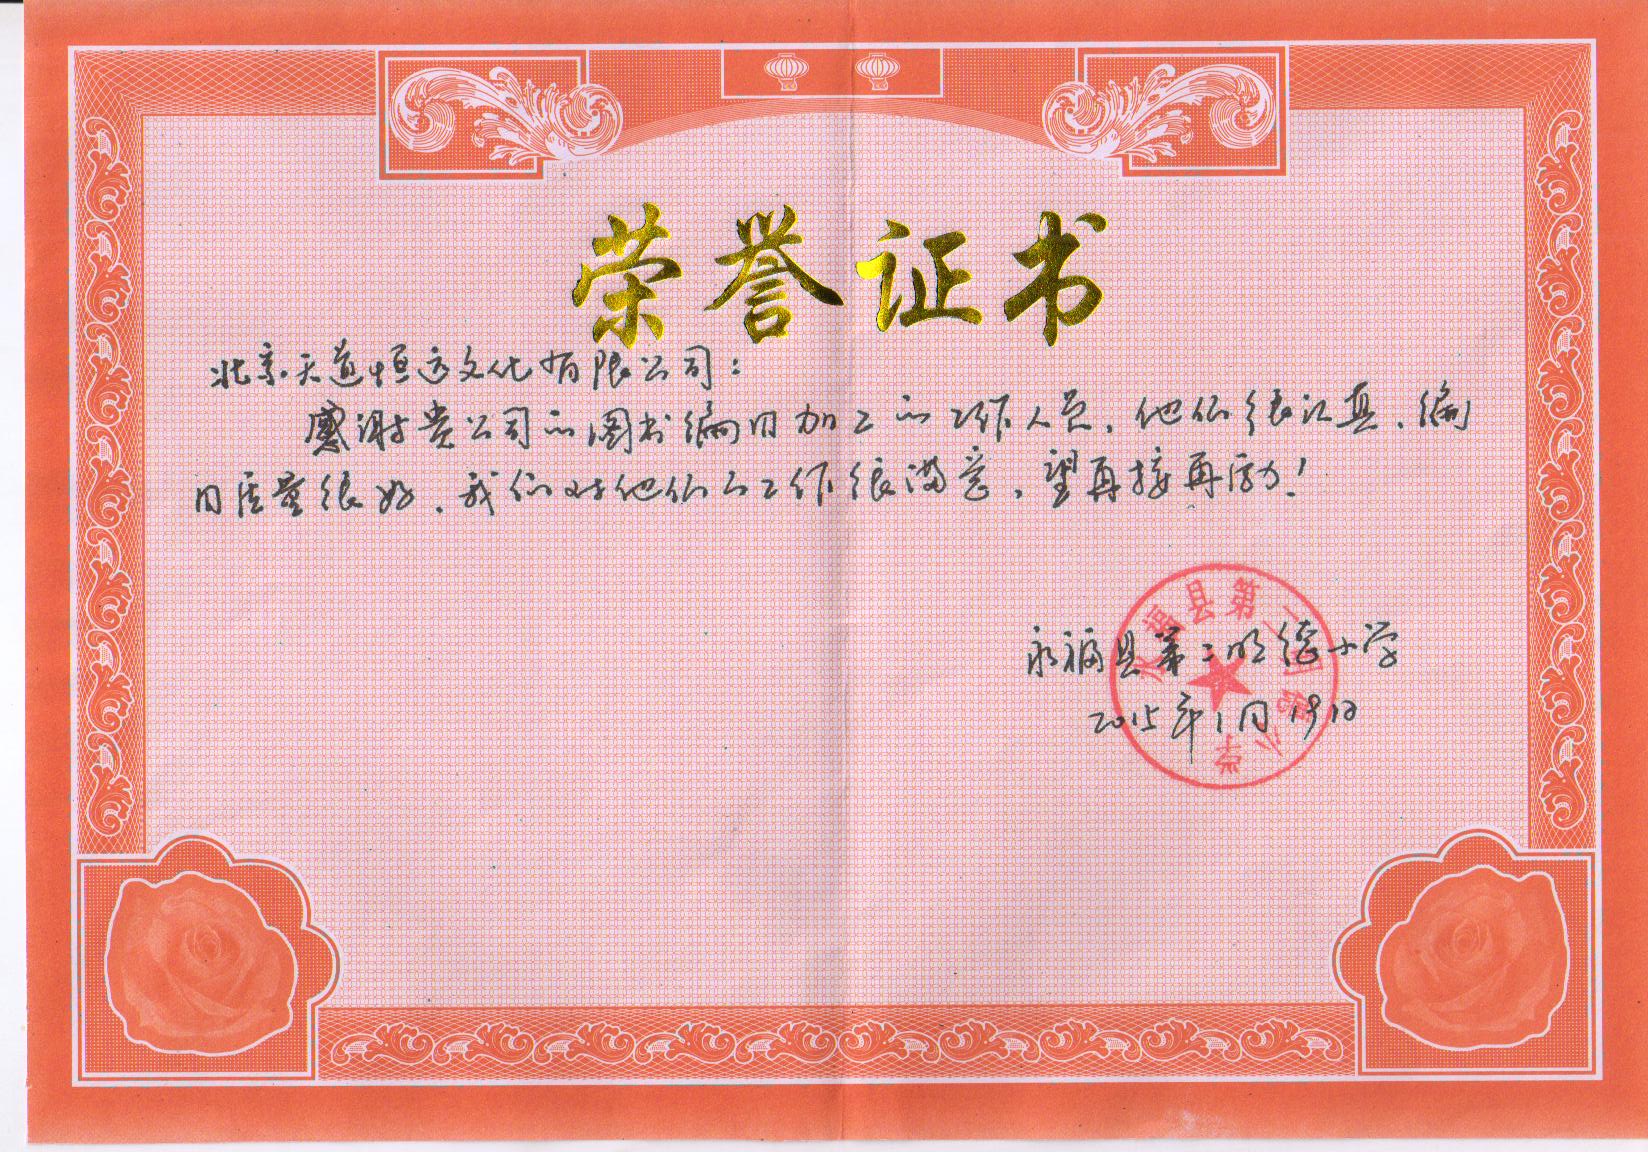 荣誉证书
北京天道恒远文化有限公司：
感谢贵公司的图书编目加工的工作人员，他们很认真，编
目质量很好，我们对他们的工作很满意，望再接再厉！
永福县第二明德小学
永福县第二明德小学
2015年1月19日